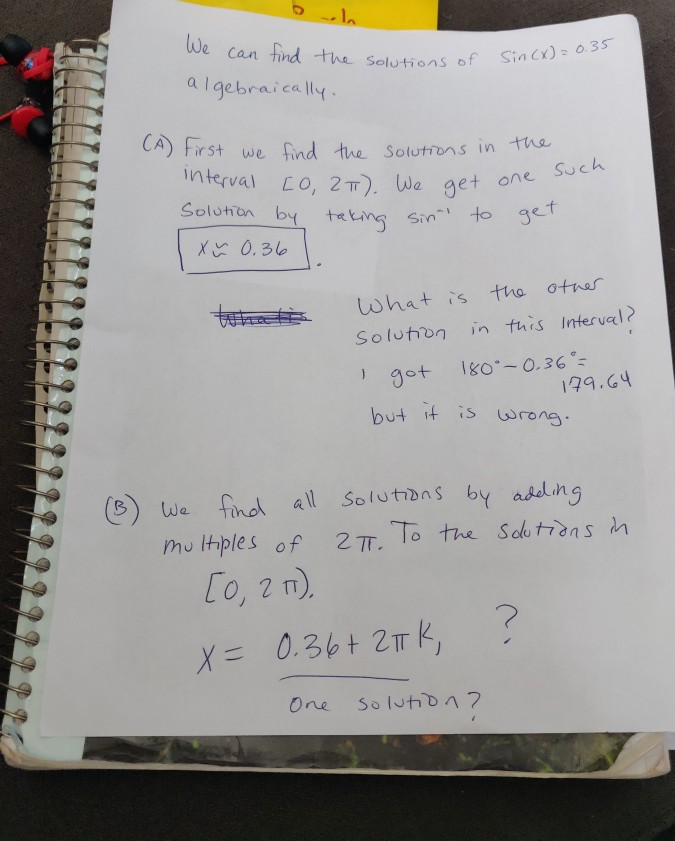 We can find the solutions of Sin(x) = 0.35
algebraically.
(A) First we find the solutions in the
interval [0, 2π). We get one such
Solution by taking sin⁻¹ to get
x ≈ 0.36.
What is the other
solution in this interval?
I got 180° - 0.36° =
179.64
but it is wrong.
(B) We find all solutions by adding
multiples of 2π. To the solutions in
[0, 2π).
x = 0.36 + 2πk, ?
one solution?